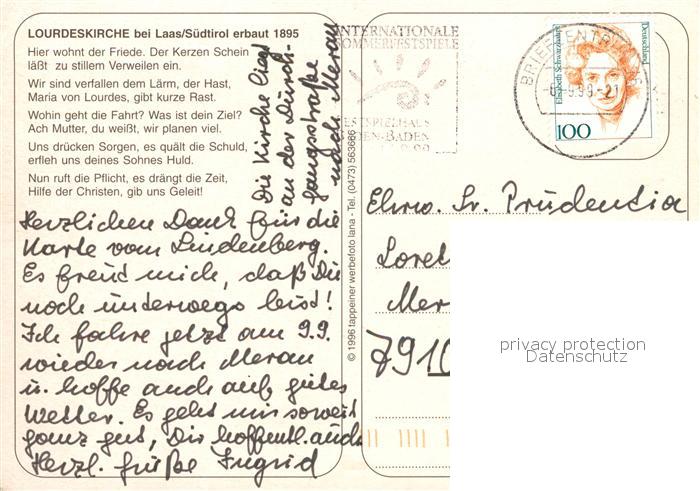 LOURDESKIRCHE bei Laas/Südtirol erbaut 1895
Hier wohnt der Friede. Der Kerzen Schein
läßt zu stillem Verweilen ein.
Wir sind verfallen dem Lärm, der Hast,
Maria von Lourdes, gibt kurze Rast.
Wohin geht die Fahrt? Was ist dein Ziel?
Ach Mutter, du weißt, wir planen viel.
Uns drücken Sorgen, es quält die Schuld,
erfleh uns deines Sohnes Huld.
Nun ruft die Pflicht, es drängt die Zeit,
Hilfe der Christen, gib uns Geleit!
Die Kirche liegt
an der Durch-
gangsstraße
nach Meran
Herzlichen Dank für die
Karte vom Lindenberg.
Es freut mich, daß Du
noch unterwegs bist!
Ich fahre jetzt am 9.9.
wieder nach Meran
u. hoffe auch auf gutes
Wetter. Es geht mir soweit
ganz gut, Dir hoffentl. auch
Herzl. Grüße Ingrid
© 1996 tappeiner werbefoto lana - Tel. (0473) 563666
INTERNATIONALE
SOMMERFESTSPIELE
FESTSPIELHAUS
EN-BADEN
BRIEFZENTRUM
9.99-21
Deutschland
Elisabeth Schwarzhaupt
100
Ehrw. Sr. Prudentia
Loret
Mer
7910
privacy protection
Datenschutz